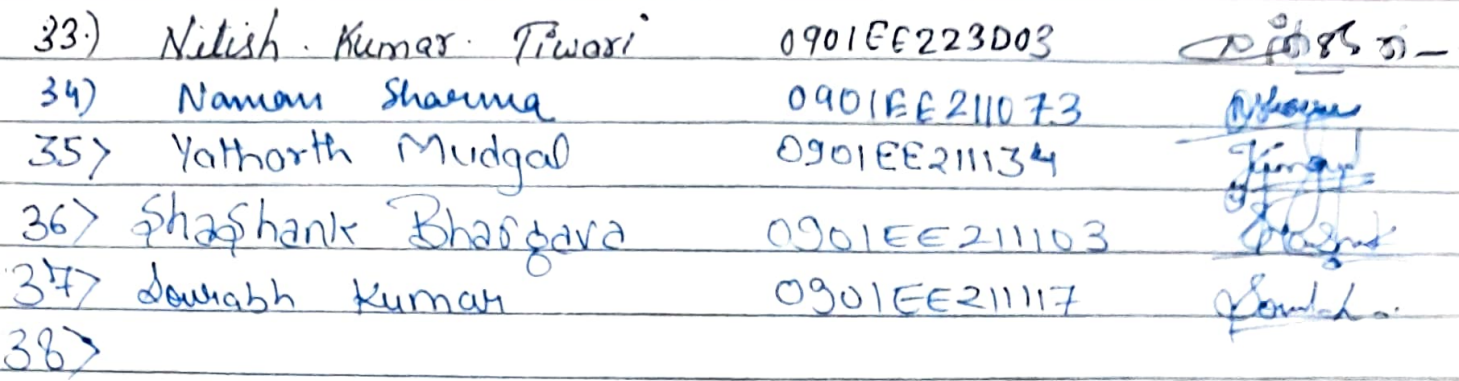 33.) Nitish. Kumar. Tiwari 0901EE223D03
34) Naman Sharma 0901EE211073
35> Yathorth Mudgal 0901EE211134
36> Shashank Bhargava 0901EE211103
37> Sourabh Kumar 0901EE211117
38>